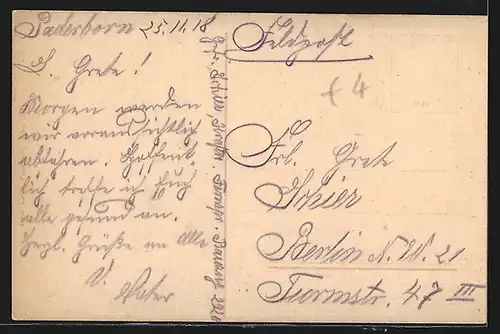 Paderborn 25.11.18
L. Grete!
Morgen werden
wir voraussichtlich
abfahren. Hoffent
lich treffe ich Euch
alle gesund an.
Herzl. Grüße an Alle
D. Vater
Schier
Feldpost
4
Frl. Grete
Schier
Berlin N.W. 21
Turmstr. 47 III